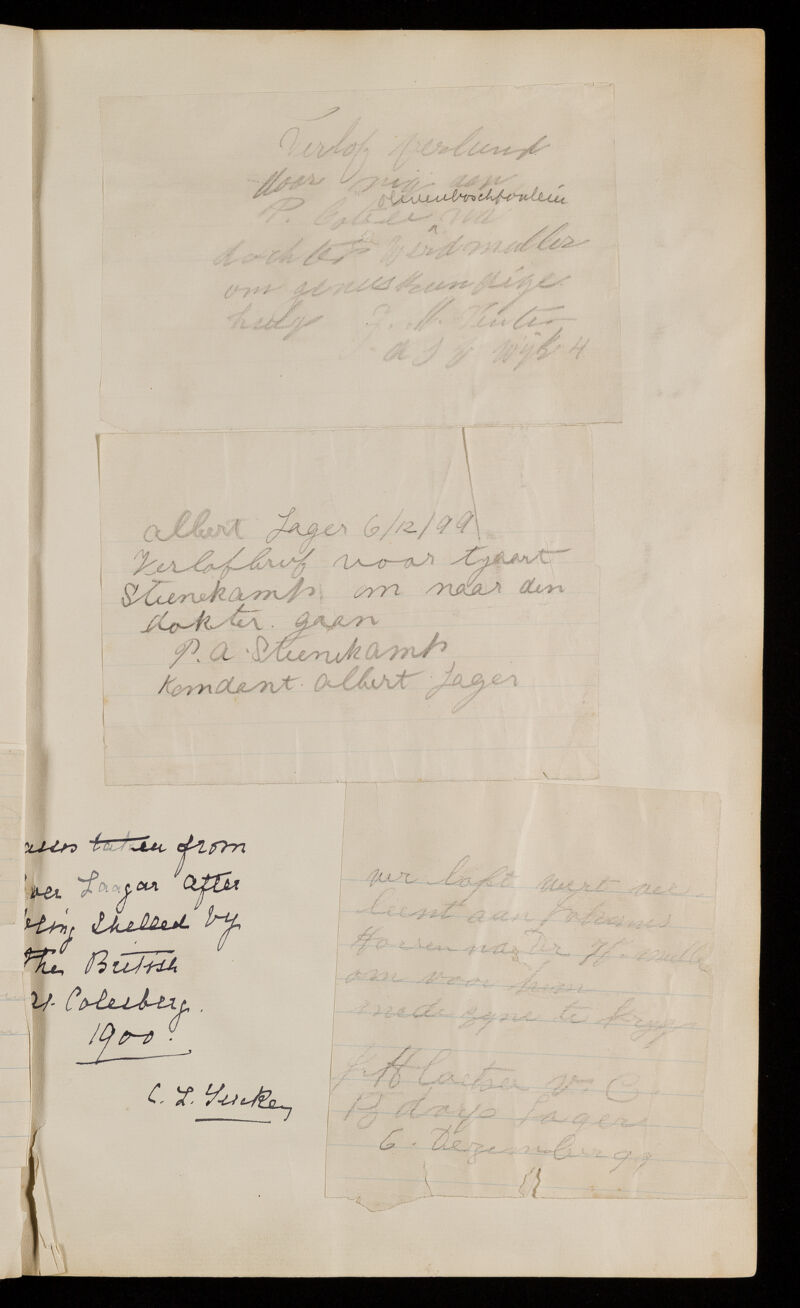 Verlof verleend
door mij aan
olivenboschfontein
P.
dochter Wirdmuller
om geneeskundige
hulp J. M. Venter
wijk 4
albert Lager 6/12/99
Verlofbrief voor tjaart
Steenekamp om naar den
dokter. gaan
P. A. Steenekamp
Komdant. albert Lager
asses taken from
oer Laagar after
eing Shelled by
the British
at Colesberg.
1900.
ver loft wert ver
leent aan
Dr W. mulle
om voor hem
mede zyne te kryg
Coetser V. C
Lager
6. Dezember 99